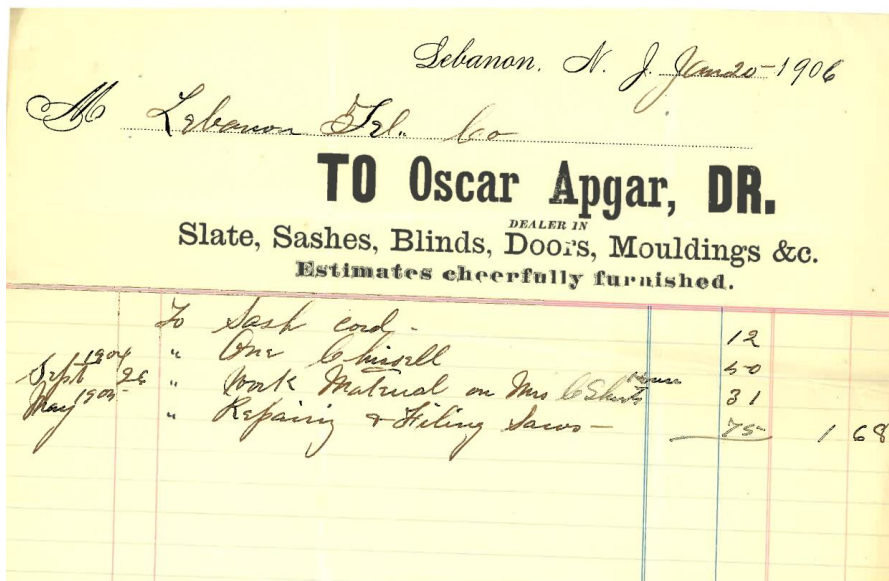 Lebanon, N. J. Jan 20 1906
M Lebanon Tel. Co
TO Oscar Apgar, DR.
DEALER IN
Slate, Sashes, Blinds, Doors, Mouldings &c.
Estimates cheerfully furnished.
To Sash cord - 12
1904 " One Chissell 50
Sept 26 " Work Material on Mrs C House 31
May 1905 " Repairing & Filing Saws - 75 1 68